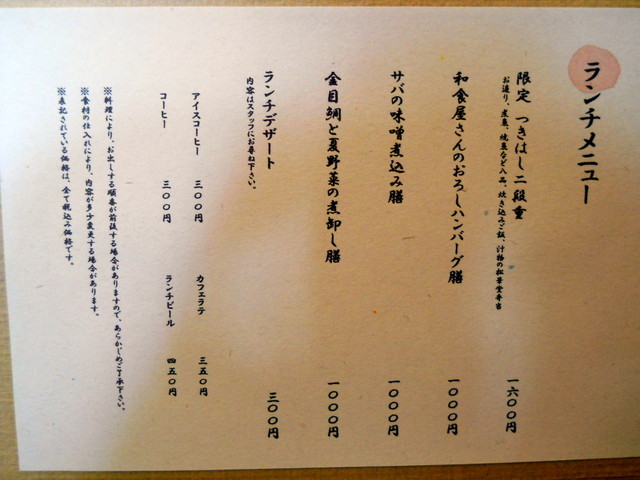 ランチメニュー
限定 つきはし二段重 一六〇〇円
お造り、煮魚、焼魚など八品、炊き込みご飯、汁物の松華堂弁当
和食屋さんのおろしハンバーグ膳 一〇〇〇円
サバの味噌煮込み膳 一〇〇〇円
金目鯛と夏野菜の煮卸し膳 一〇〇〇円
ランチデザート 三〇〇円
内容はスタッフにお尋ね下さい。
アイスコーヒー 三〇〇円 カフェラテ 三五〇円
コーヒー 三〇〇円 ランチビール 四五〇円
※料理により、お出しする順番が前後する場合がありますので、あらかじめご了承下さい。
※食材の仕入れにより、内容が多少変更する場合があります。
※表記されている価格は、全て税込み価格です。